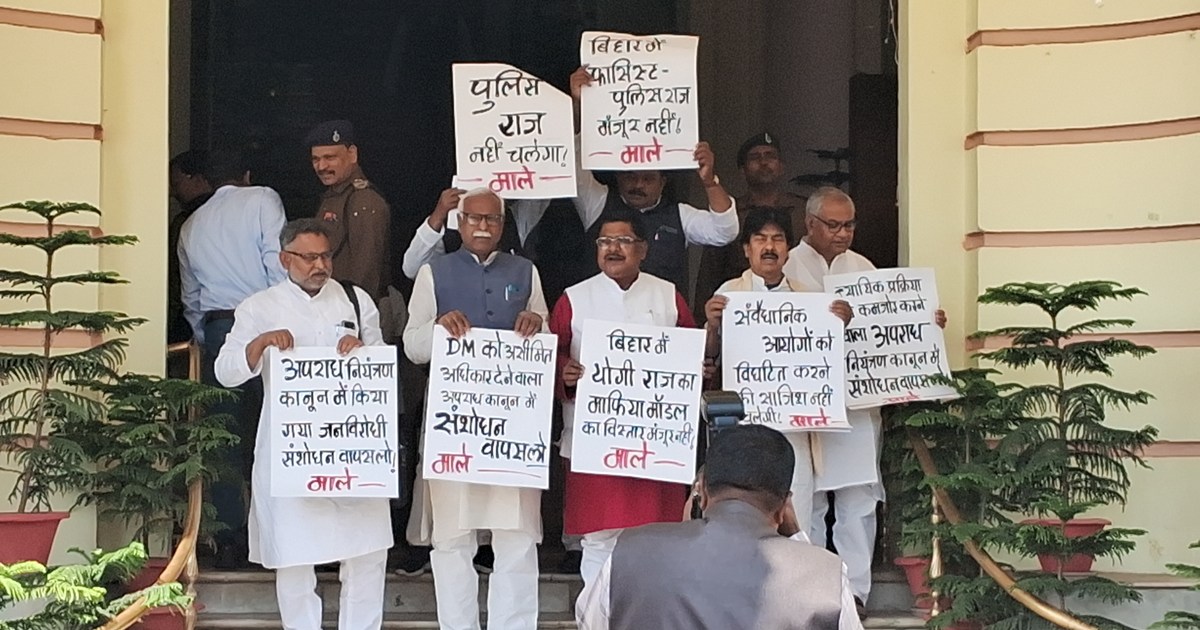 पुलिस
राज
नहीं चलेगा!
माले
बिहार में
फासिस्ट-
पुलिस राज
मंजूर नहीं!
माले
अपराध नियंत्रण
कानून में किया
गया जनविरोधी
संशोधन वापस लो!
माले
DM को असीमित
अधिकार देने वाला
अपराध कानून में
संशोधन
वापस लो
माले
बिहार में
योगी राज का
माफिया मॉडल
का विस्तार मंजूर नहीं!
माले
संवैधानिक
आयोगों को
विघटित करने
की साजिश नहीं
चलेगी! माले
न्यायिक प्रक्रिया
कमजोर करने
वाला अपराध
नियंत्रण कानून में
संशोधन वापस